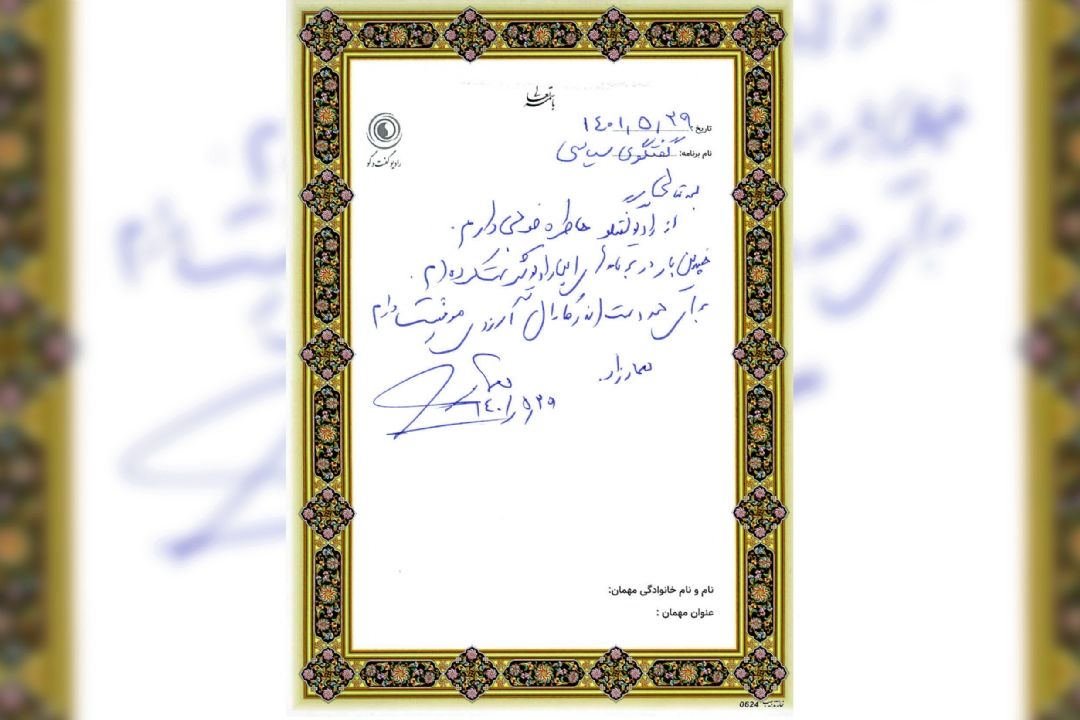 باسمه تعالی
رادیو گفت و گو
تاریخ: ۱۴۰۱٫۵٫۲۹
نام برنامه: گفتگوی سیاسی
بسمه تعالی
از رادیو گفتگو خاطره خوبی دارم.
چندین بار در برنامه های این رادیو شرکت کرده ام.
برای همه دست اندرکاران آن آرزوی موفقیت دارم
۱۴۰۱٫۵٫۲۹
نام و نام خانوادگی مهمان:
عنوان مهمان :
0624